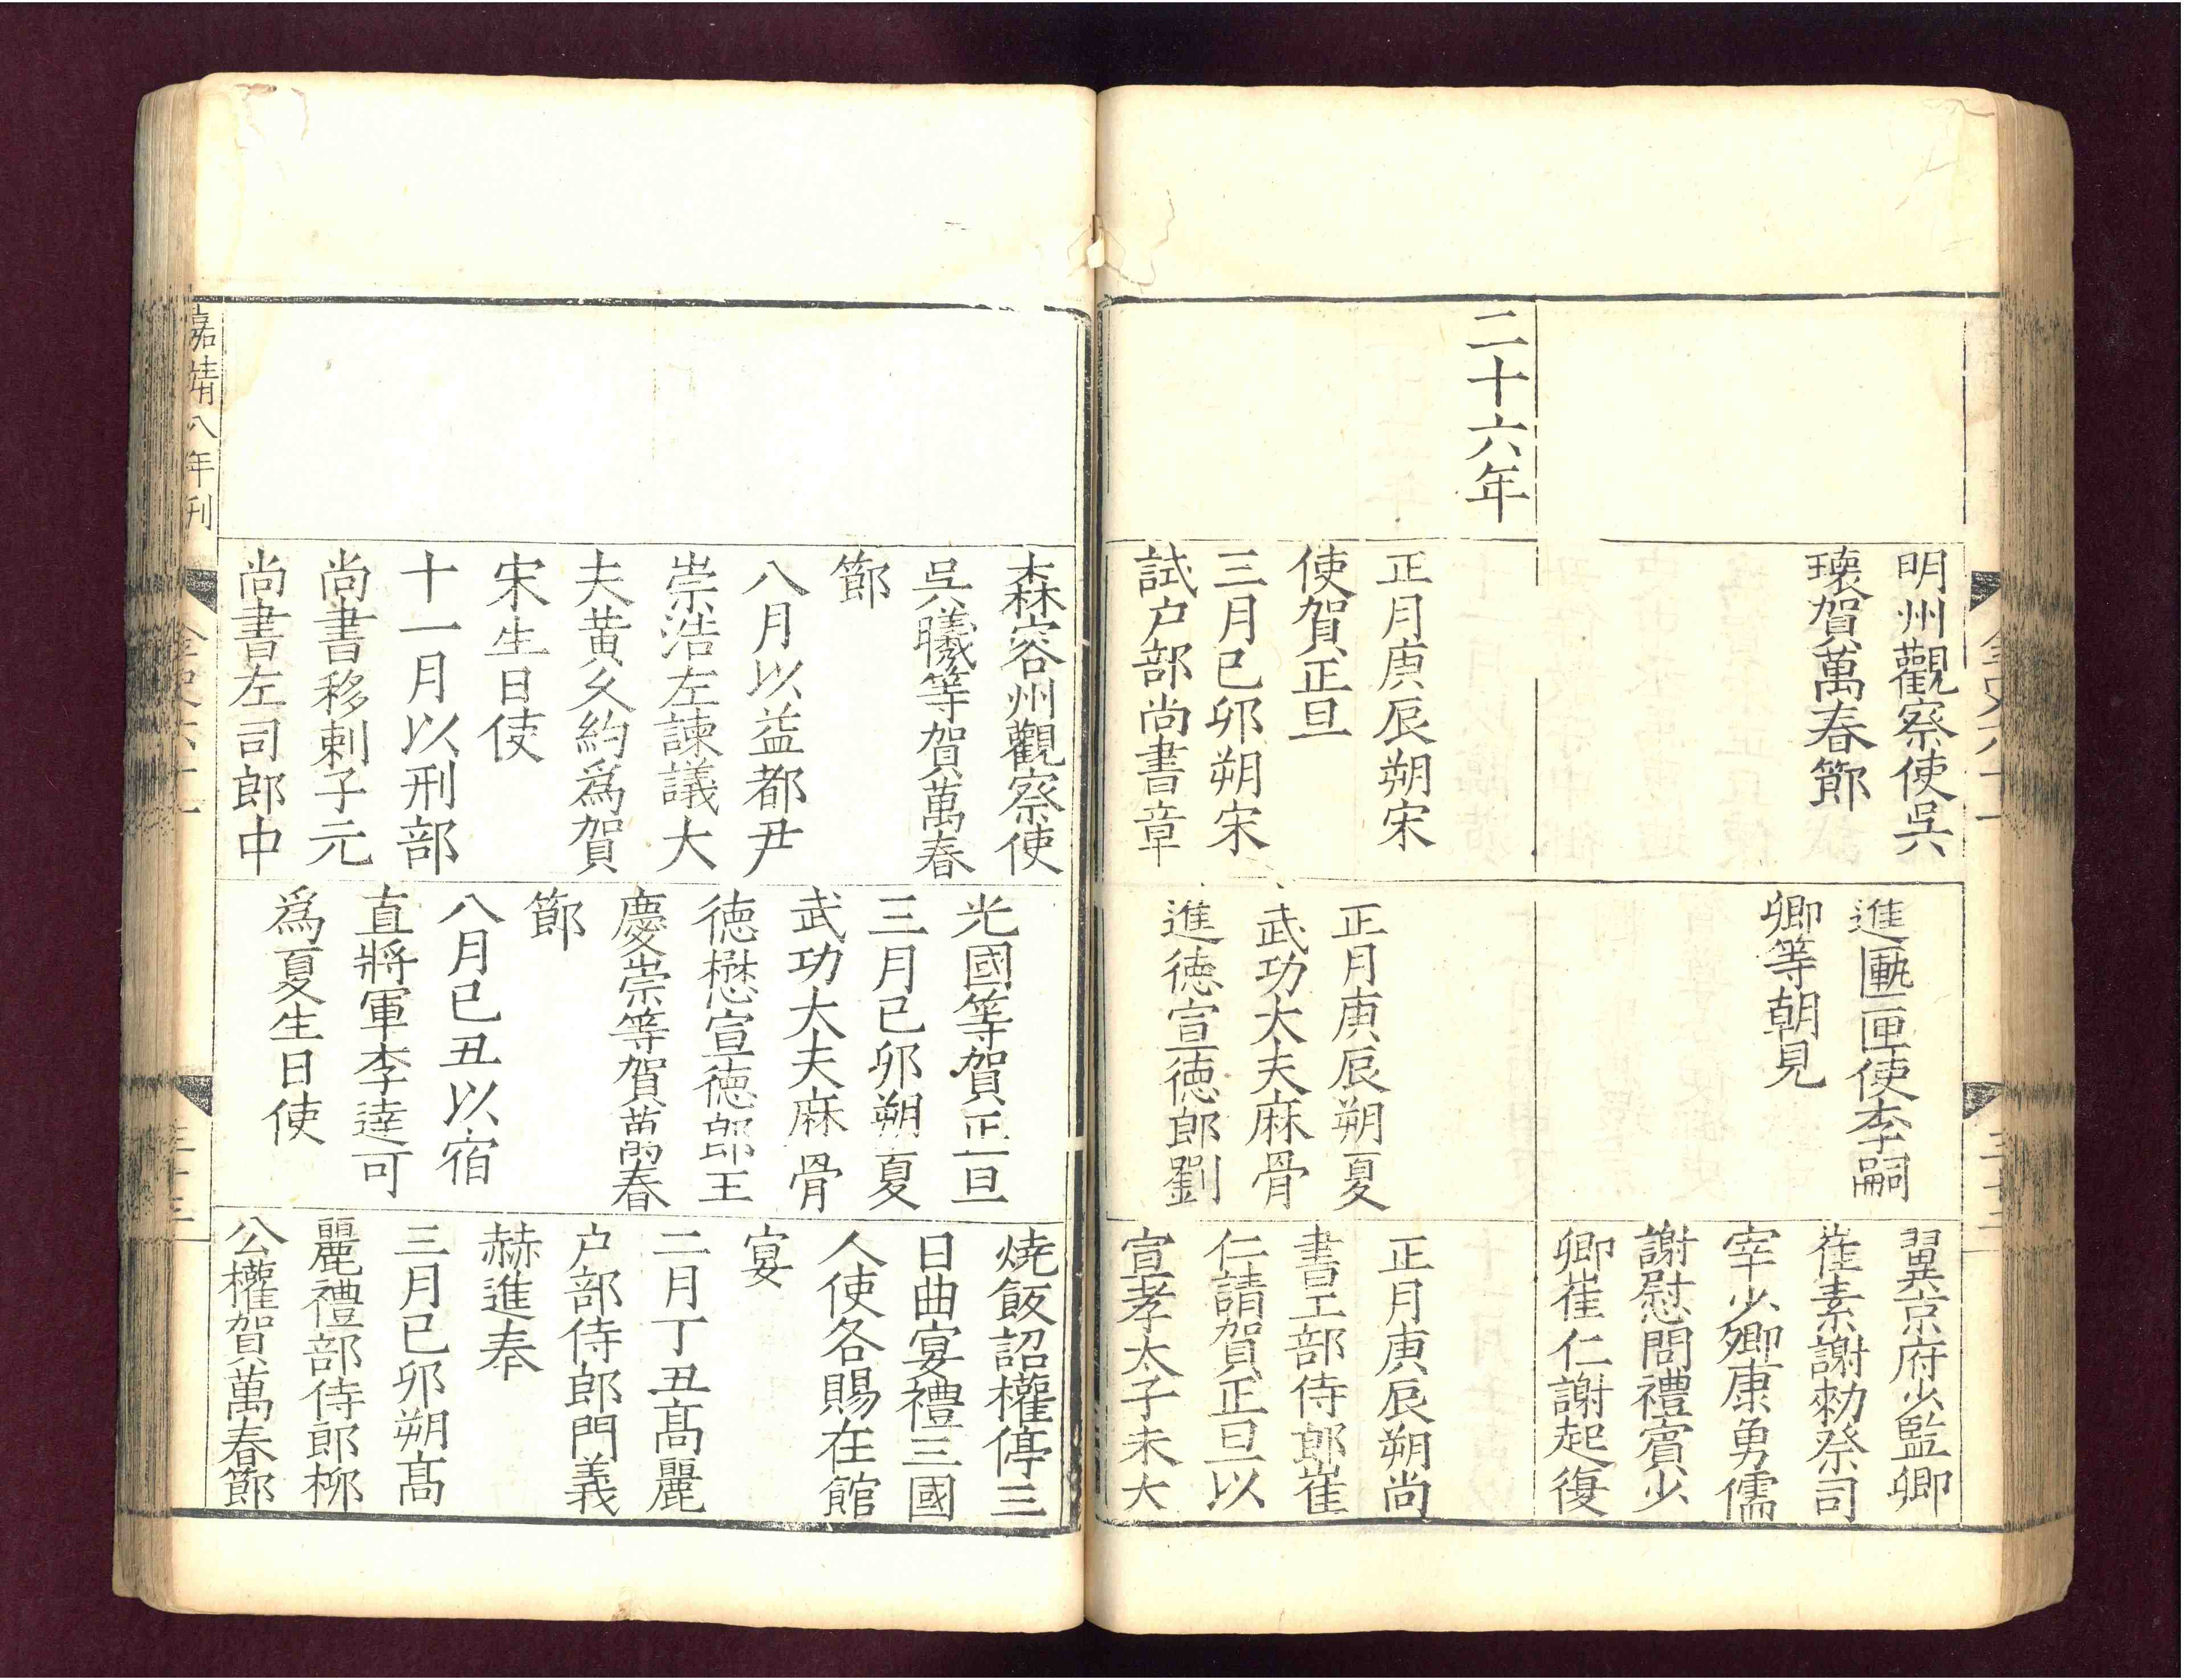 明州觀察使吳
瓌賀萬春節
進匭匣使李嗣
卿等朝見
翼京府少監卿
崔素謝勑祭司
宰少卿康勇儒
謝慰問禮賓少
卿崔仁謝起復
二十六年
正月庚辰朔宋
使賀正旦
三月己卯朔宋
試户部尚書章
正月庚辰朔夏
武功大夫麻骨
進德宣德郎劉
正月庚辰朔尚
書工部侍郎崔
仁請賀正旦以
宣孝太子未大
森容州觀察使
吳曦等賀萬春
節
八月以益都尹
崇浩左諫議大
夫黄久約爲賀
宋生日使
十一月以刑部
尚書移剌子元
尚書左司郎中
光國等賀正旦
三月己卯朔夏
武功大夫麻骨
德懋宣德郎王
慶崇等賀萬春
節
八月己丑以宿
直將軍李達可
爲夏生日使
燒飯詔權停三
日曲宴禮三國
人使各賜在館
宴
二月丁丑髙麗
户部侍郎門義
赫進奉
三月己卯朔髙
麗禮部侍郎柳
公權賀萬春節
嘉靖八年刊